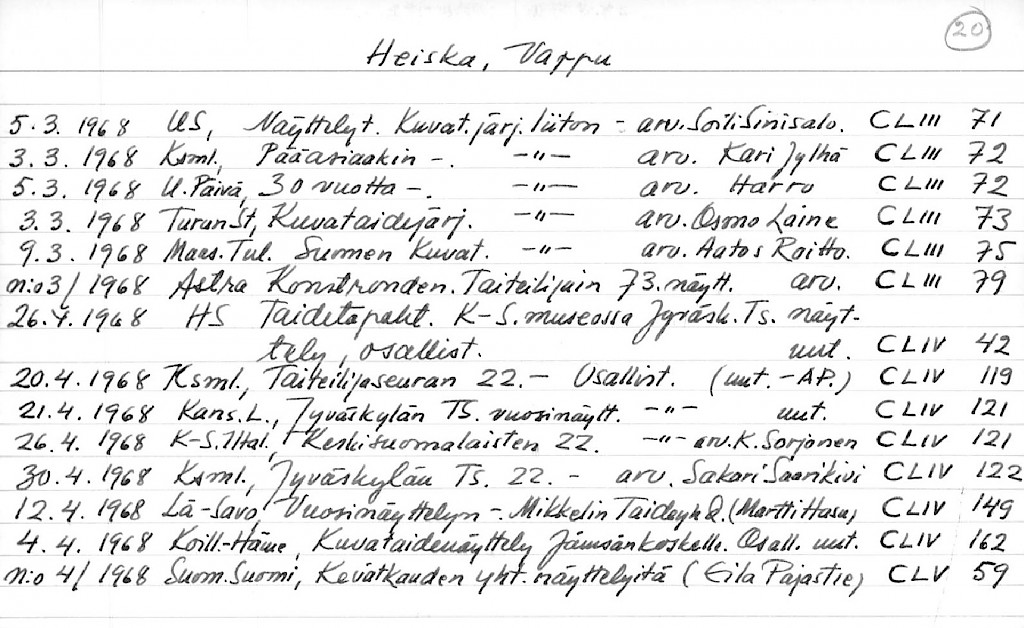 20
Heiska, Vappu
5.3. 1968 US, Näyttelyt. Kuvat.järj. liiton - arv. Soili Sinisalo. CLIII 71
3.3. 1968 Ksml., Pääasiaakin -. -"- arv. Kari Jylhä CLIII 72
5.3. 1968 U. Päivä, 30 vuotta -. -"- arv. Harru CLIII 72
3.3. 1968 Turun St, Kuvataidejärj. -"- arv. Osmo Laine CLIII 73
9.3. 1968 Maas. Tul. Suomen Kuvat. -"- arv. Aatos Roitto. CLIII 75
n:o 3/1968 Astra Konstronden. Taiteilijain 73. näytt. arv. CLIII 79
26.4. 1968 HS Taidetapaht. K-S. museossa Jyväsk. Ts. näyt-
tely, osallist. uut. CLIV 42
20.4. 1968 Ksml., Taiteilijaseuran 22. - Osallist. (uut. - AP.) CLIV 119
21.4. 1968 Kans. L., Jyväskylän TS. vuosinäytt. -"- uut. CLIV 121
26.4. 1968 K-S. Iltal., Keskisuomalaisten 22. -"- arv. K. Sorjonen CLIV 121
30.4. 1968 Ksml., Jyväskylän Ts. 22. - arv. Sakari Saarikivi CLIV 122
12.4. 1968 Lä-Savo, Vuosinäyttelyn -. Mikkelin Taideyh (Martti Hasu) CLIV 149
4.4. 1968 Koill.-Häme, Kuvataidenäyttely Jämsänkoskelle. Osall. uut. CLIV 162
n:o 4/1968 Suom. Suomi, Kevätkauden yht. näyttelyitä (Eila Pajastie) CLV 59